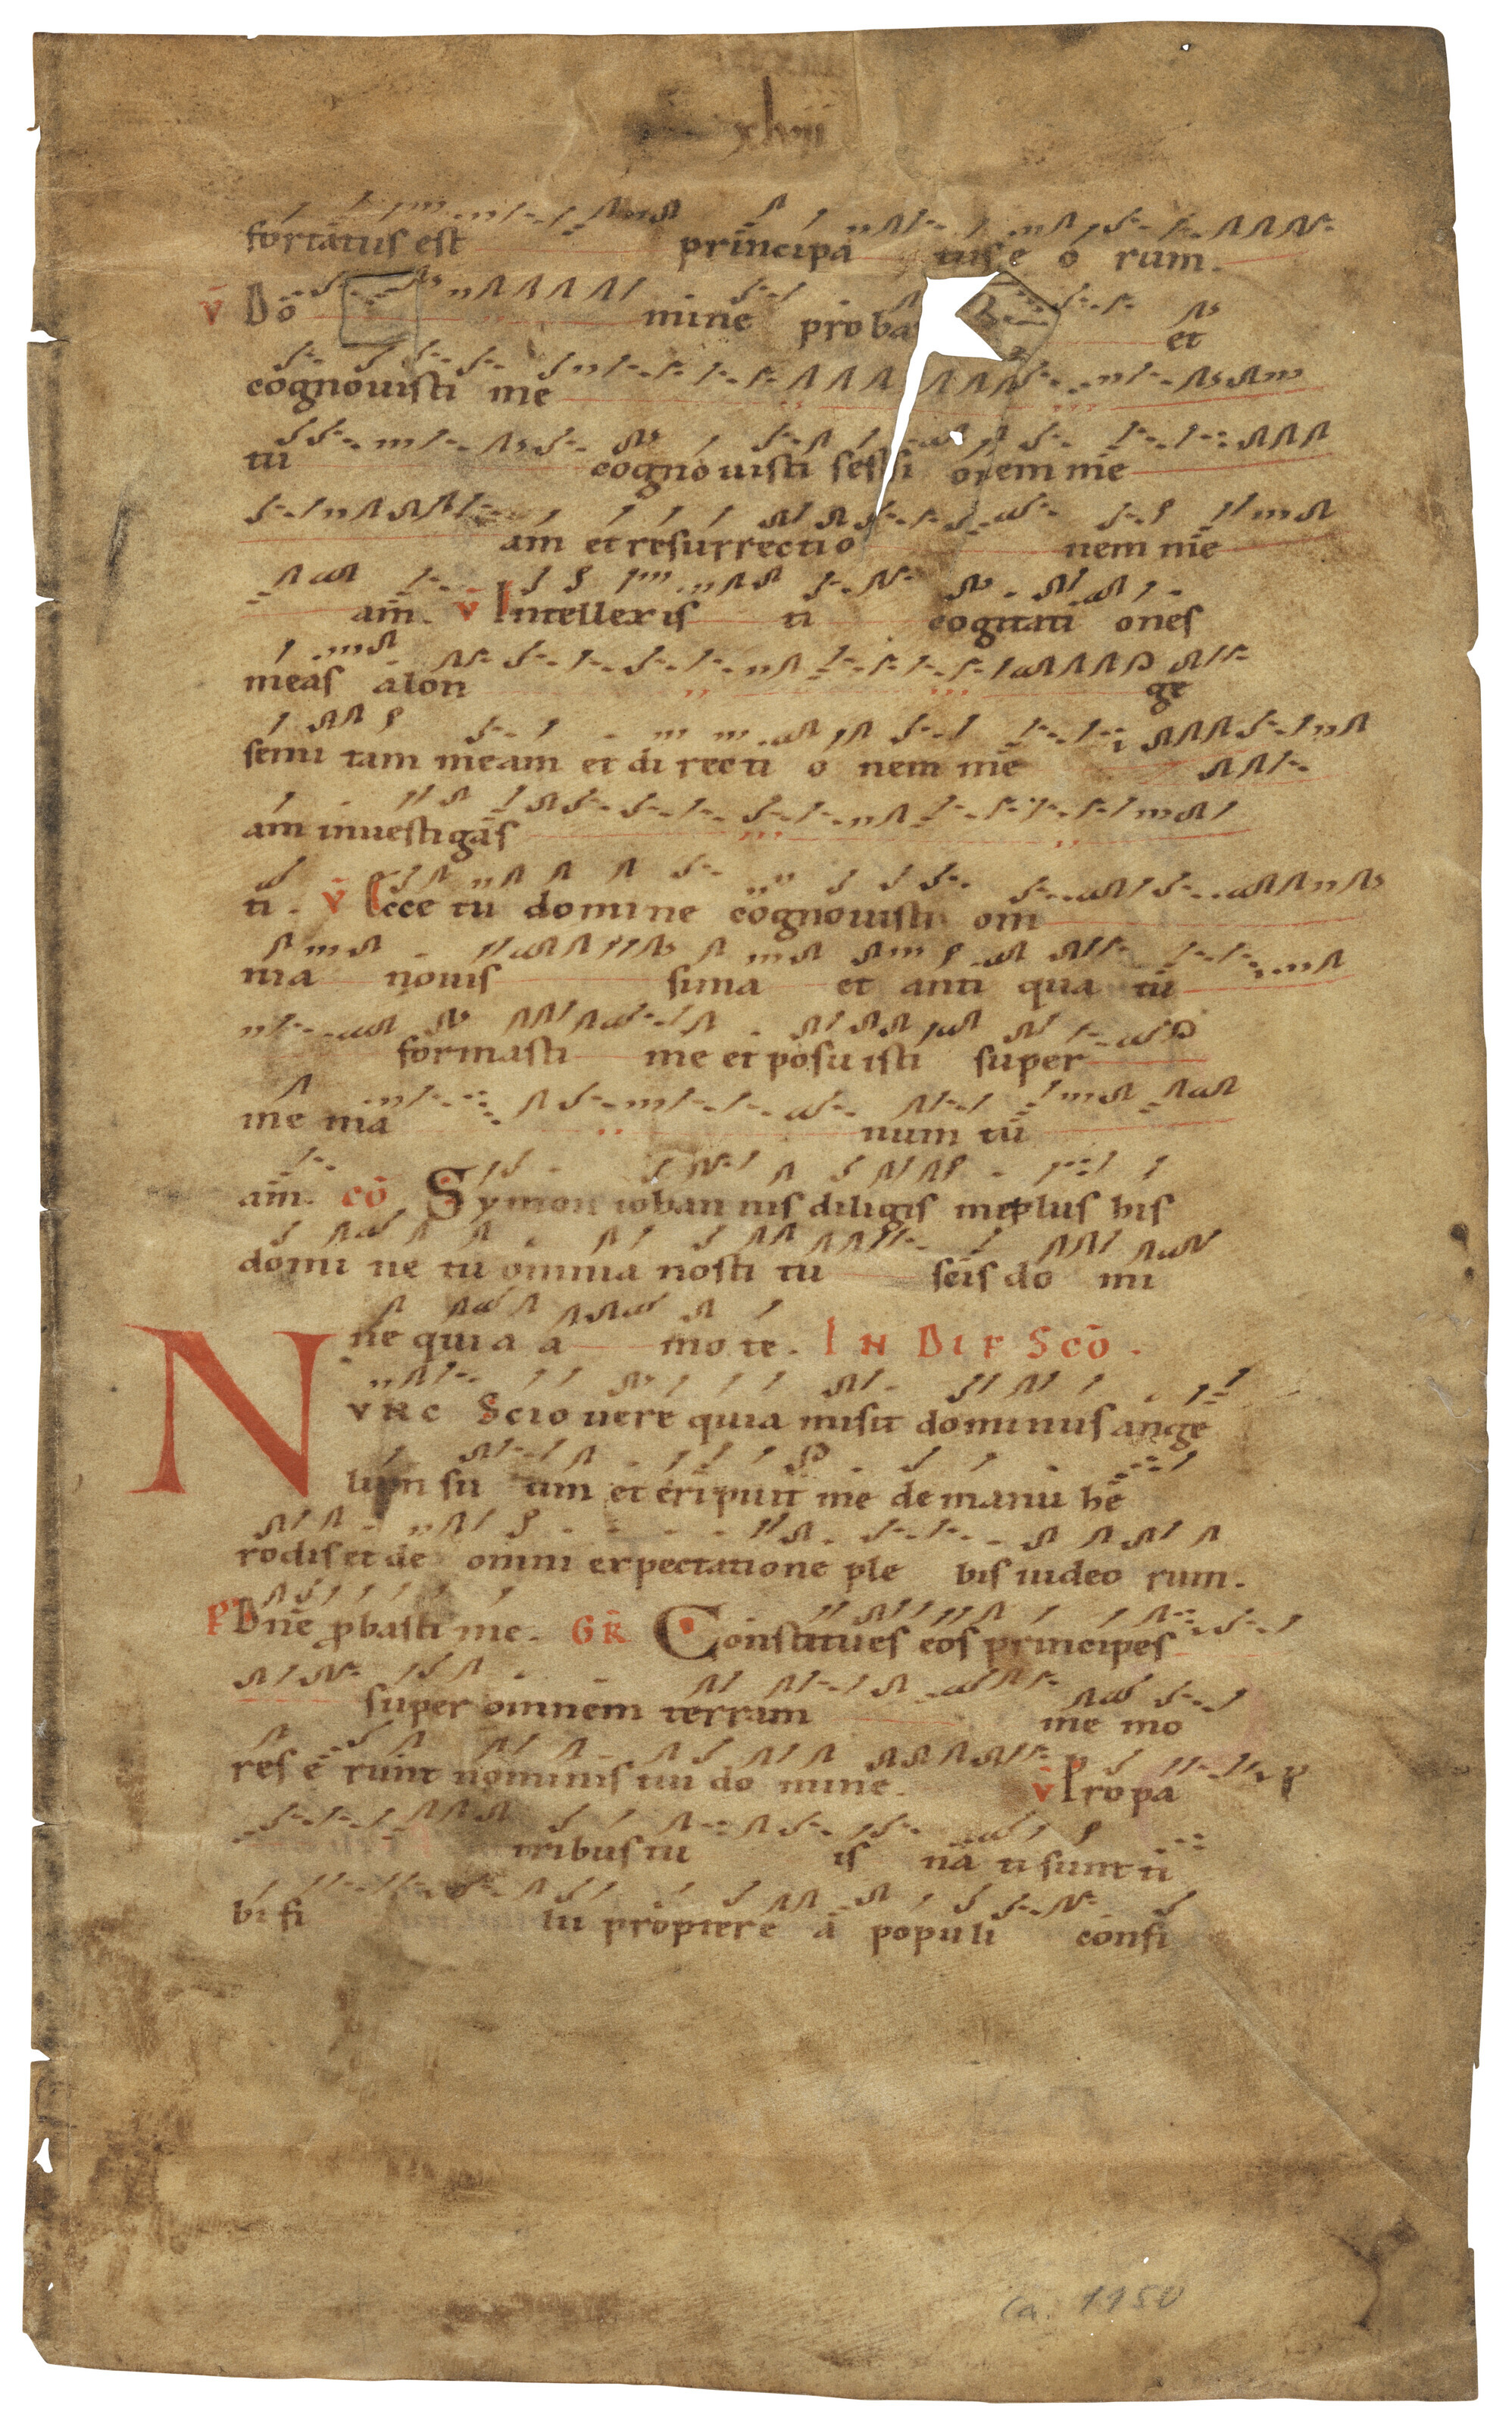 xlviii
fortatus est principa tus e o rum.
v̄ Do mine proba et
cognouisti me
tu cognouisti sessi onem me
am et resurrectio nem me
am. v̄ Intellexis ti cogitati ones
meas alon ge
semi tam meam et di recti o nem me
am inuestigas
ti. v̄ Ecce tu domine cognouisti om
nia nouis sima et anti qua tu
formasti me et posuisti super
me ma num tu
am. cō Symon iohan nis diligis me plus his
domi ne tu omnia nosti tu scis do mi
ne quia a mo te. IN DIE SCŌ.
NVNC Scio uere quia misit dominus ange
lum su um et eripuit me de manu he
rodis et de omni expectatione ple bis iudeo rum.
Ps Dn̄e ꝓbasti me. GR̄ Constitues eos principes
super omnem terram me mo
res e runt nominis tui do mine. v̄ Pro pa
tribus tu is na ti sunt ti
bi fi lii proptere a populi confi
Ca. 1150